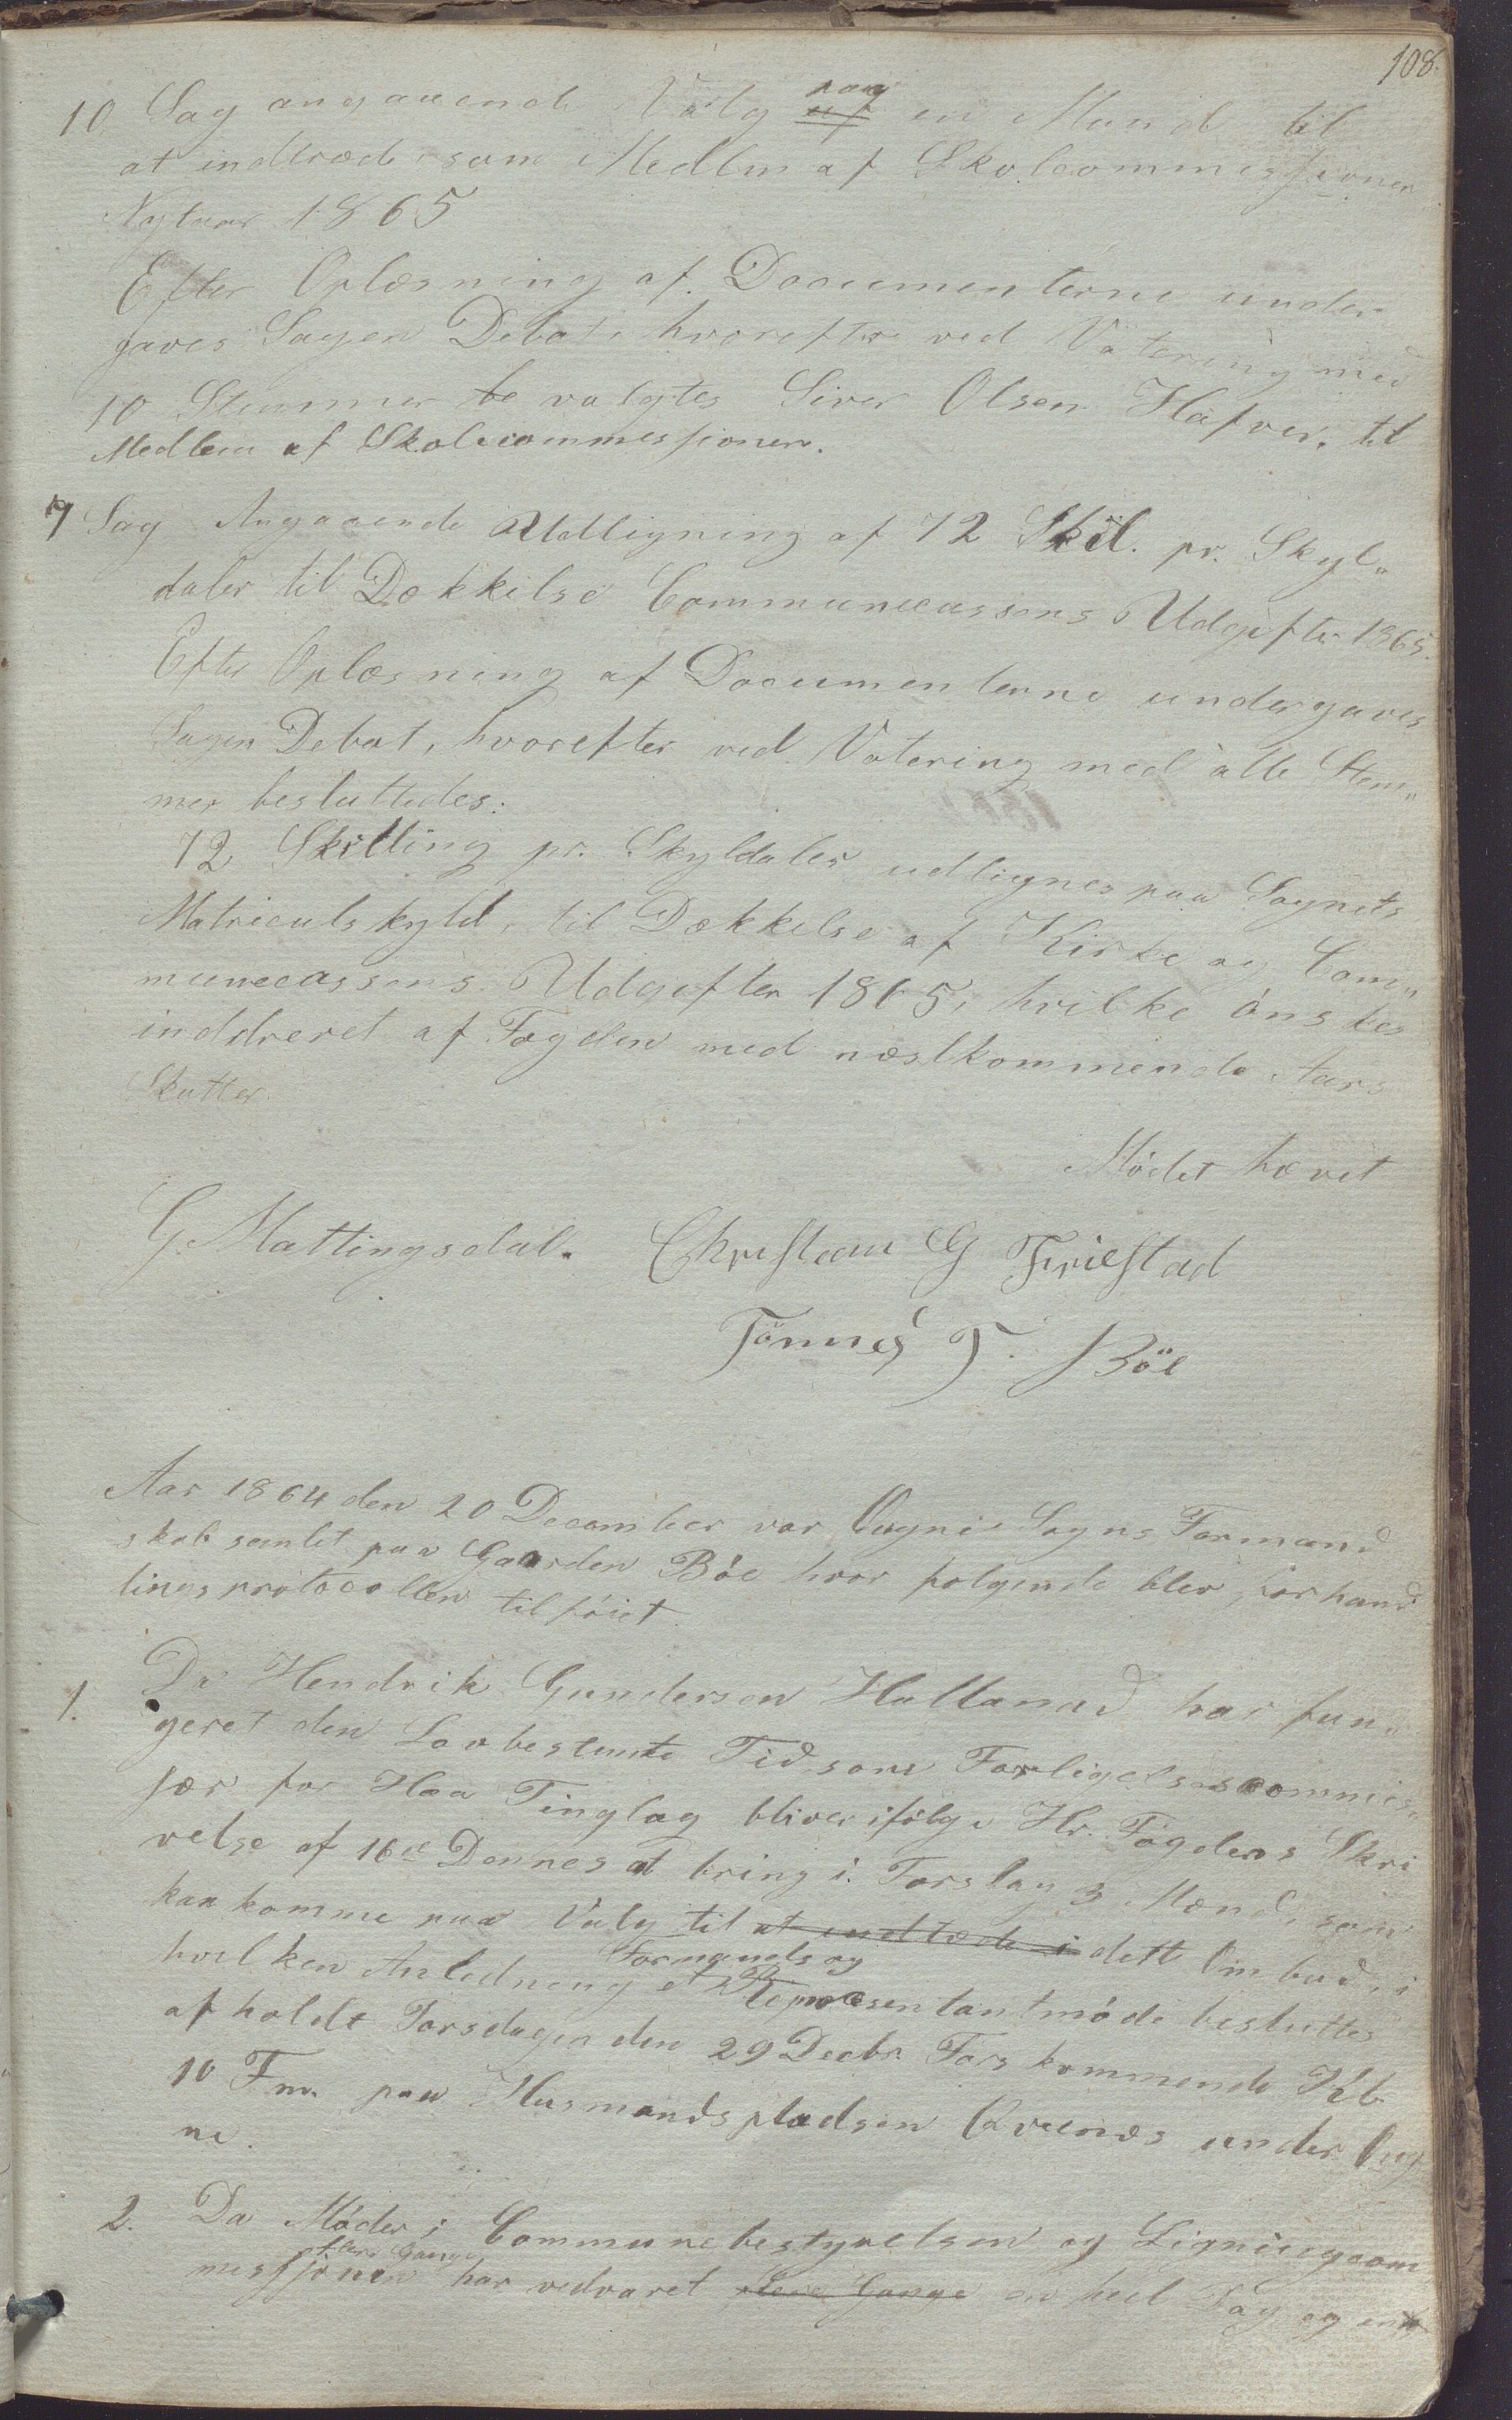 108.
10 Sag angaaende Valg paa en Mand til
at indtræde som Medlem af Skolecommissionen
Nytaar 1865
Efter Oplæsning af Documenterne under-
gaves Sagen Debat, hvorefter ved Votering med
10 Stemmer be valgtes Siver Olsen Hafver, til
Medlem af Skolecommissionen.
7 Sag Angaaende Udligning af 72 Skil. pr. Skyl„
daler til Dækkelse Communecassens Udgifter 1865.
Efter Oplæsning af Documenterne undergaves
Sagen Debat, hvorefter ved Votering med alle Stem„
mer besluttedes:
72 Skilling pr. Skyldaler udlignes paa Sognets
Matriculskyld, til Dækkelse af Kirke og Com„
munecassens Udgifter 1865, hvilke ónskes
inddrevet af Fogden med næstkommende Aars
Skatter.
Módet hævet
G. Mattingsdal. Christian G Friestad
Tönnes T. Böe
Aar 1864 den 20 December var Ougne Sogns Formand
skab samlet paa Gaarden Bóe hvor folgende blev forhand
lingsprotocollen tilfóiet.
1. Da Hendrik Gundersen Halland har fun„
geret den Lovbestemte Tid som Forligelsescommis„
sær for Haa Tinglag bliver ifólge Hr. Fogdens Skri
velse af 16de Dennes at bring i Forslag 3 Mænd, som
kan komme paa Valg til at indtræde i dette Ombud, i
Formands og
hvilken Anledning et Repræsentantmóde besluttes
afholdt Torsdagen den 29 Decbr. Førskommende Kl.
10 Fm. paa Husmandspladsen Qvernæs under Oug
ne.
2. Da Móder i Communebestyrelsen og Ligningcom
flere Gange
missjónen har vedvaret flere Gange en heel Dag og en